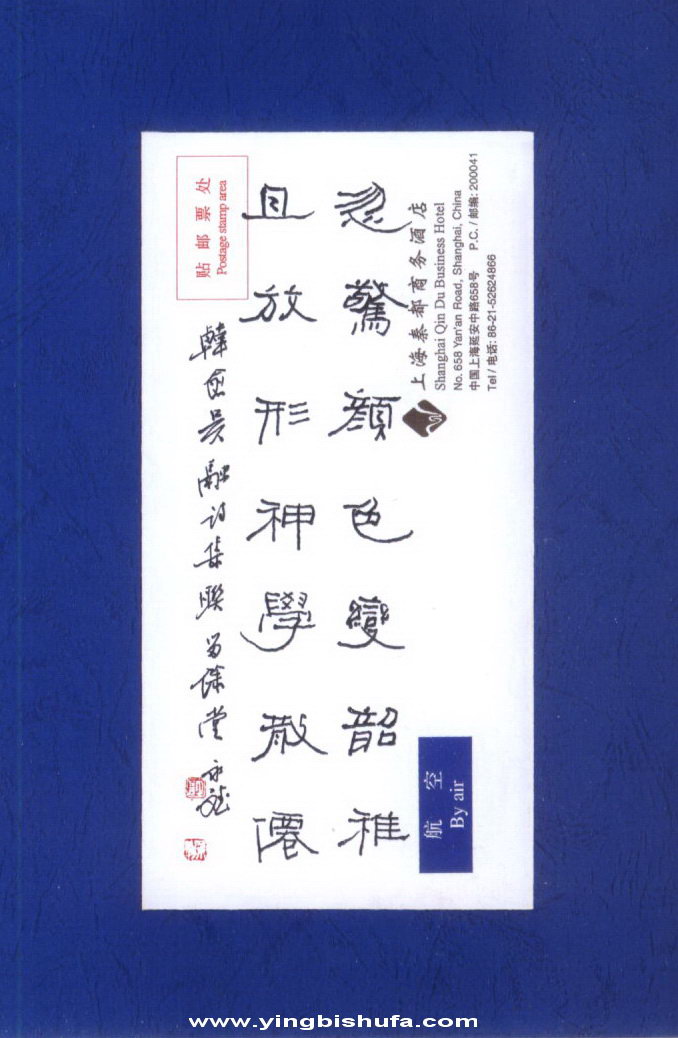 忽驚顔色變韶稚
且放形神學散僊
韓愈吳融詩集聯
贴邮票处
Postage stamp area
上海秦都商务酒店
Shanghai Qin Du Business Hotel
No. 658 Yan'an Road, Shanghai, China
中国上海延安中路658号 P.C. / 邮编: 200041
Tel / 电话: 86-21-52624866
航空
By air
www.yingbishufa.com